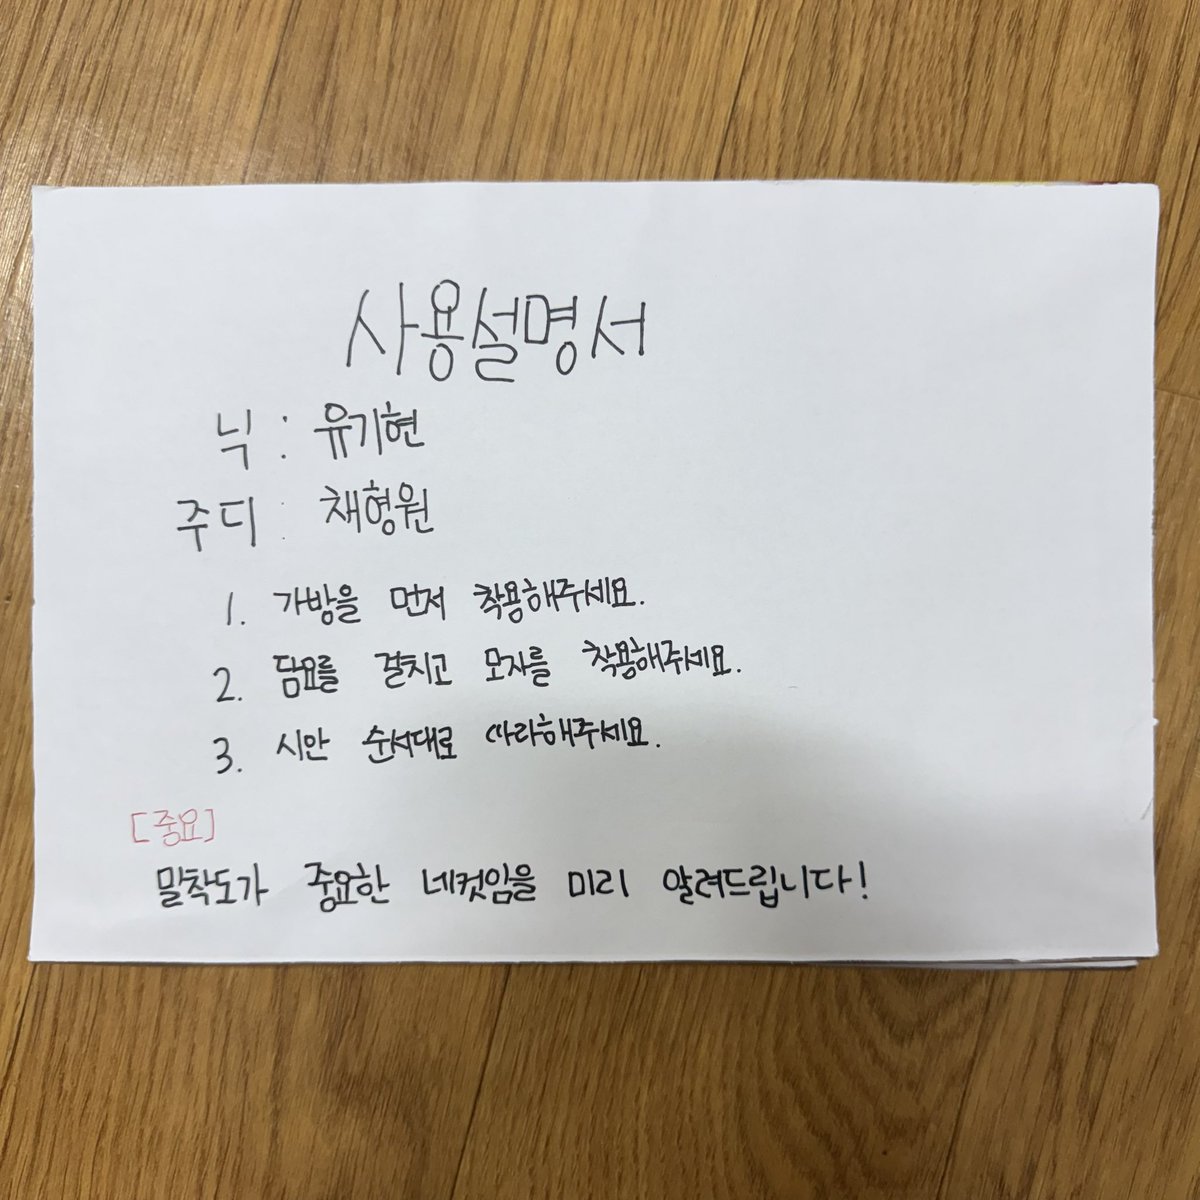 사용설명서
닉 : 유기현
주디 : 채형원
1. 가방을 먼저 착용해주세요.
2. 담요를 걸치고 모자를 착용해주세요.
3. 시안 순서대로 따라해주세요.
[중요]
밀착도가 중요한 네컷임을 미리 알려드립니다!